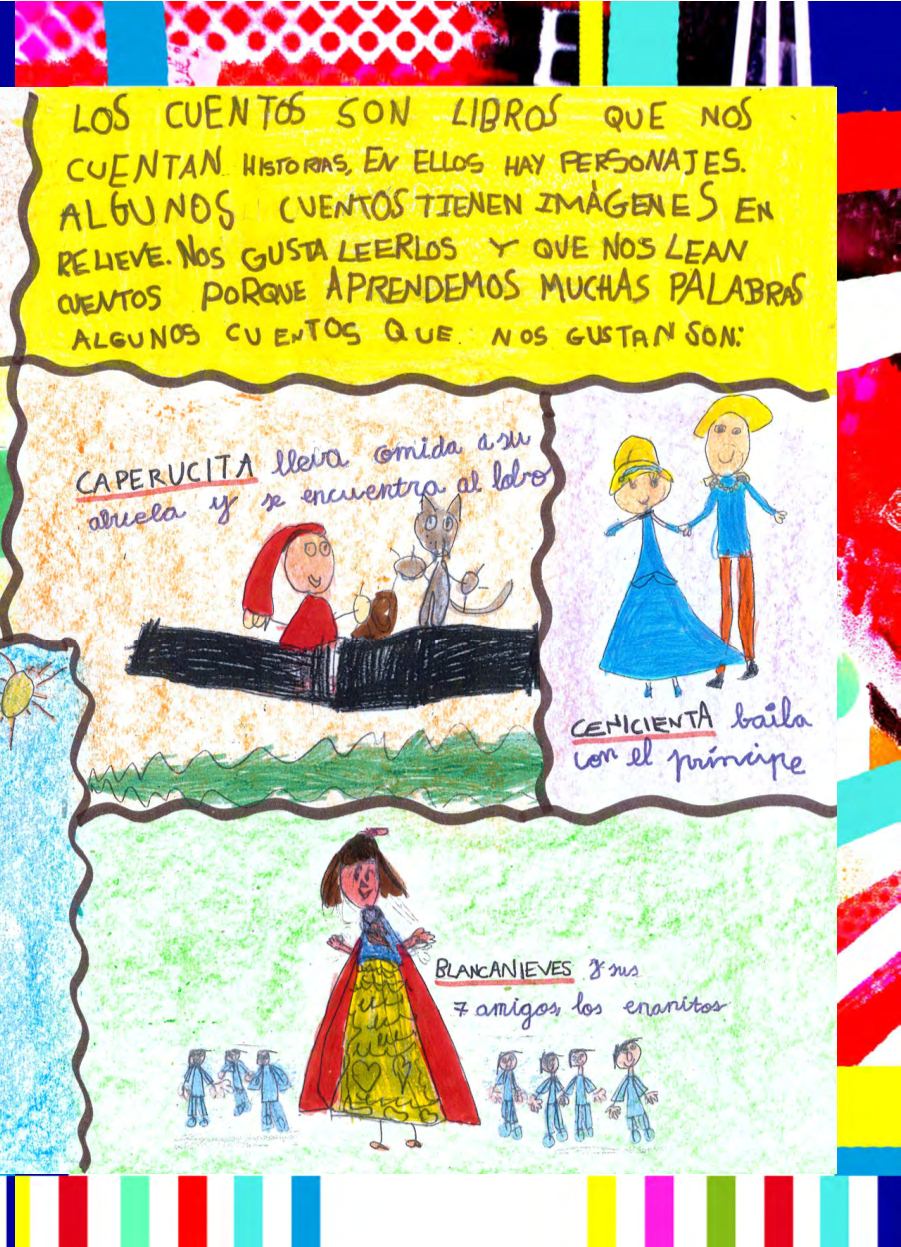 LOS CUENTOS SON LIBROS QUE NOS
CUENTAN HISTORIAS, EN ELLOS HAY PERSONAJES.
ALGUNOS CUENTOS TIENEN IMÀGENES EN
RELIEVE. NOS GUSTA LEERLOS Y QUE NOS LEAN
CUENTOS PORQUE APRENDEMOS MUCHAS PALABRAS
ALGUNOS CUENTOS QUE NOS GUSTAN SON:
CAPERUCITA lleva comida a su
abuela y se encuentra al lobo
CENICIENTA baila
con el príncipe
BLANCANIEVES y sus
7 amigos los enanitos